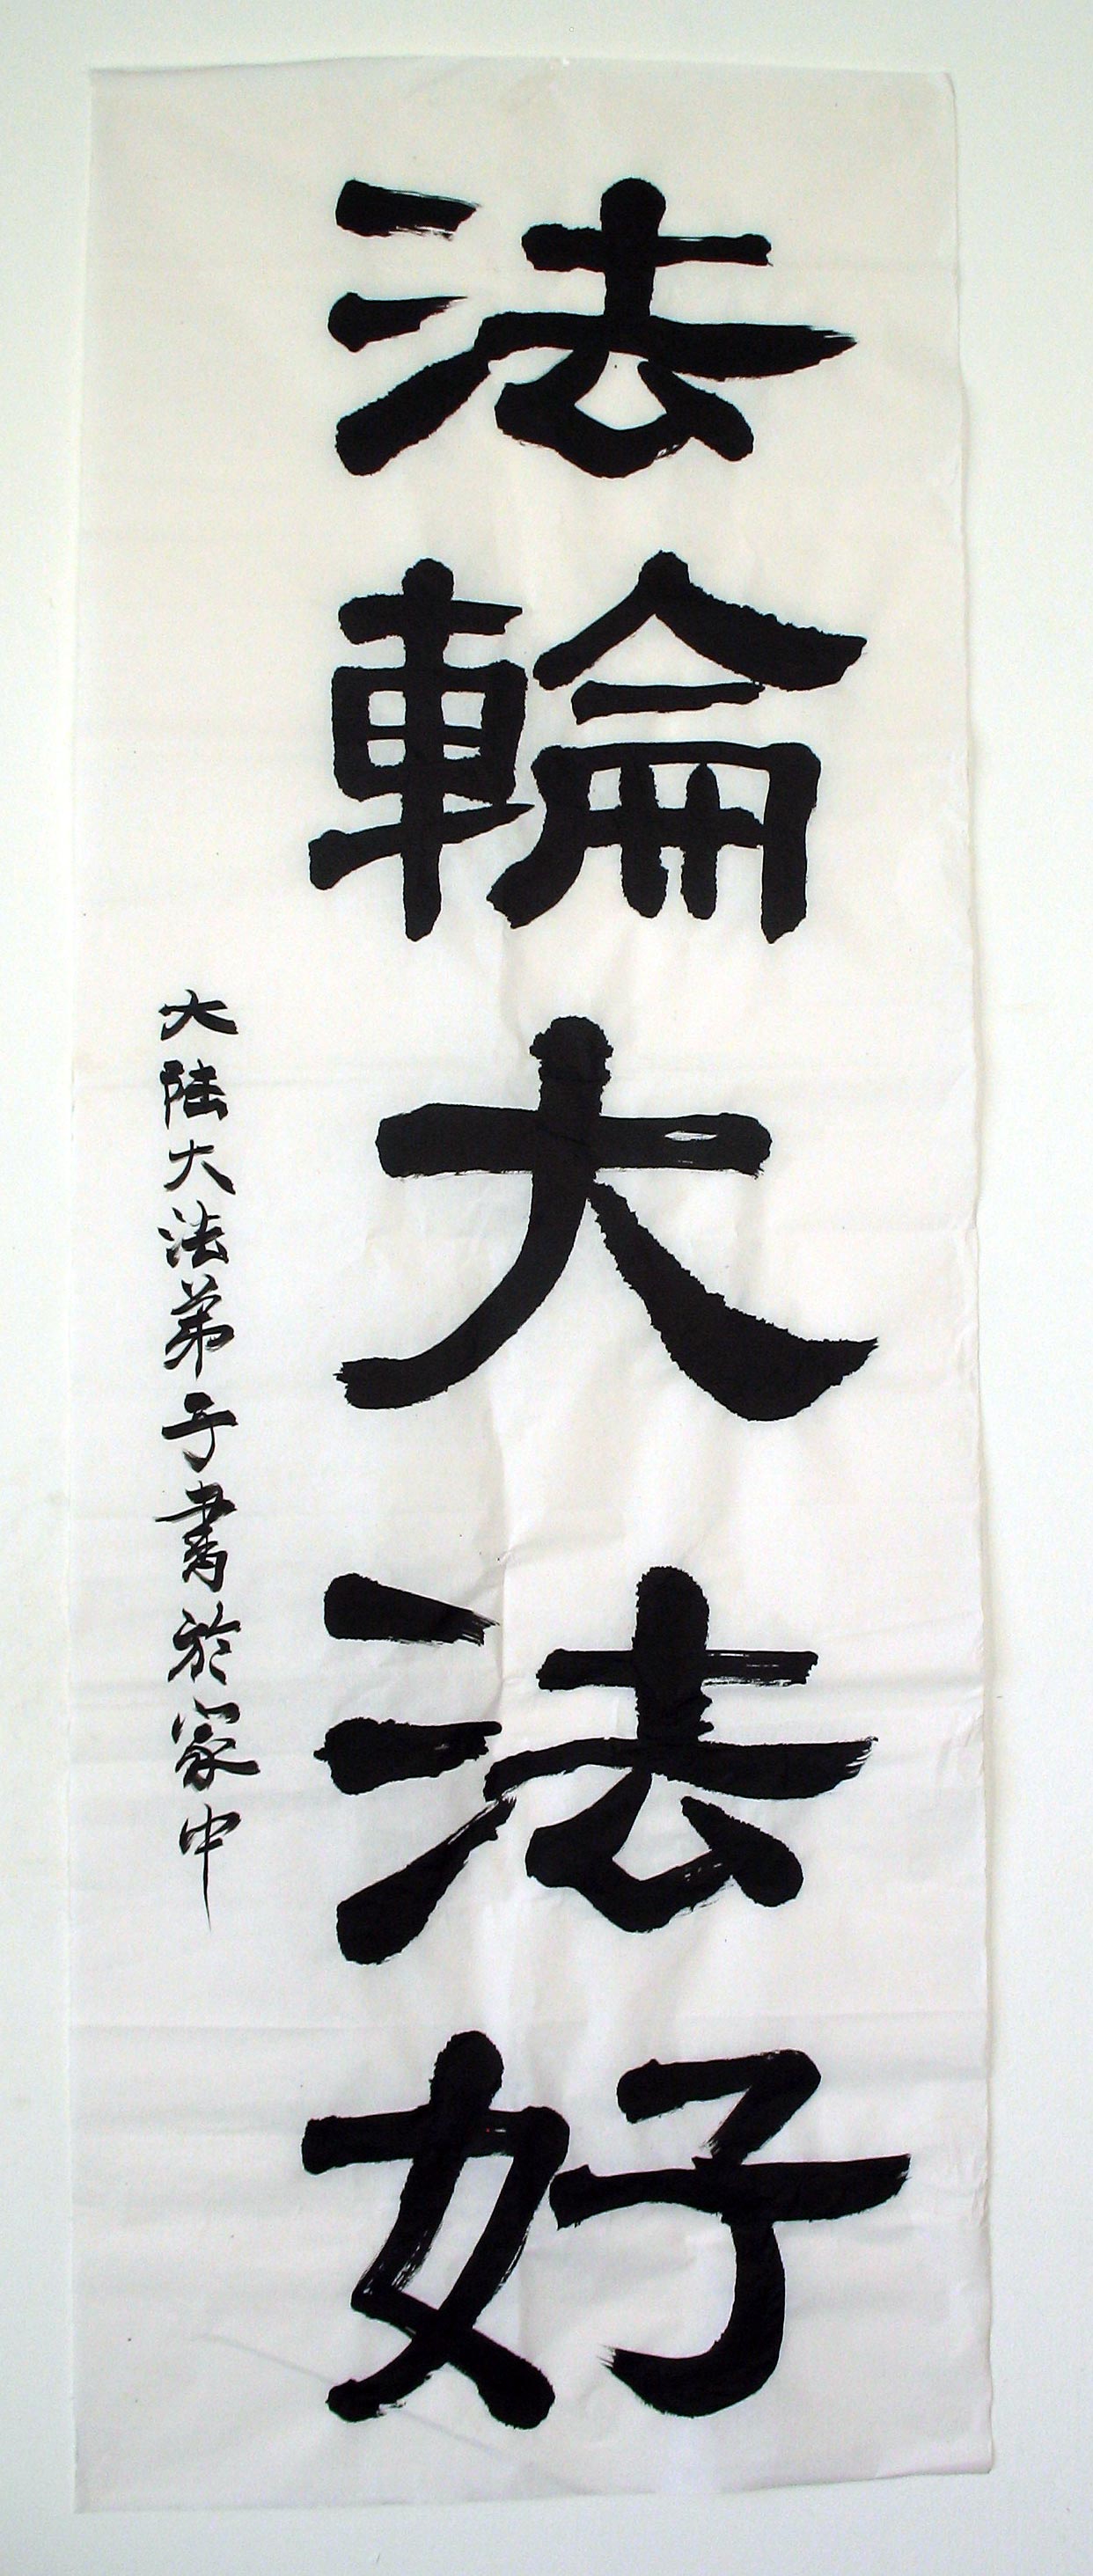 法輪大法好
大陆大法弟子書於家中